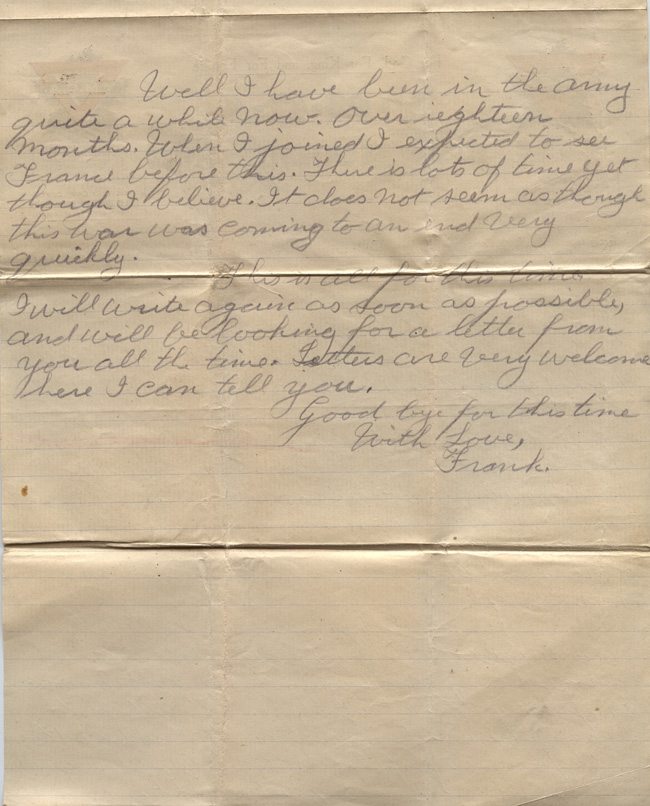 Well I have been in the army
quite a while now. Over eighteen
months. When I joined I expected to see
France before this. There is lots of time yet
though I believe. It does not seem as though
this war was coming to an end very
quickly.
This is all for this time
I will write again as soon as possible,
and will be looking for a letter from
you all the time. Letters are very welcome
here I can tell you.
Good bye for this time
With Love,
Frank.